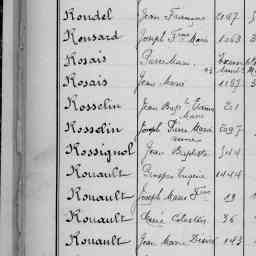 Rondel Jean François 2167
Ronsard Joseph Fois Marie 1263
Rosais Pierre Marie
Rosais Jean Marie 1187
Rosselin Jean Bapte Etienne 251
Marie
Rosselin Joseph Pierre Marie 2097
Rossignol Jean Baptiste 544
Rouault Prosper Eugène 1444
Rouault Joseph Marie Fois 19
Rouault Célestin 36
Rouault Jean Marie Désiré 143